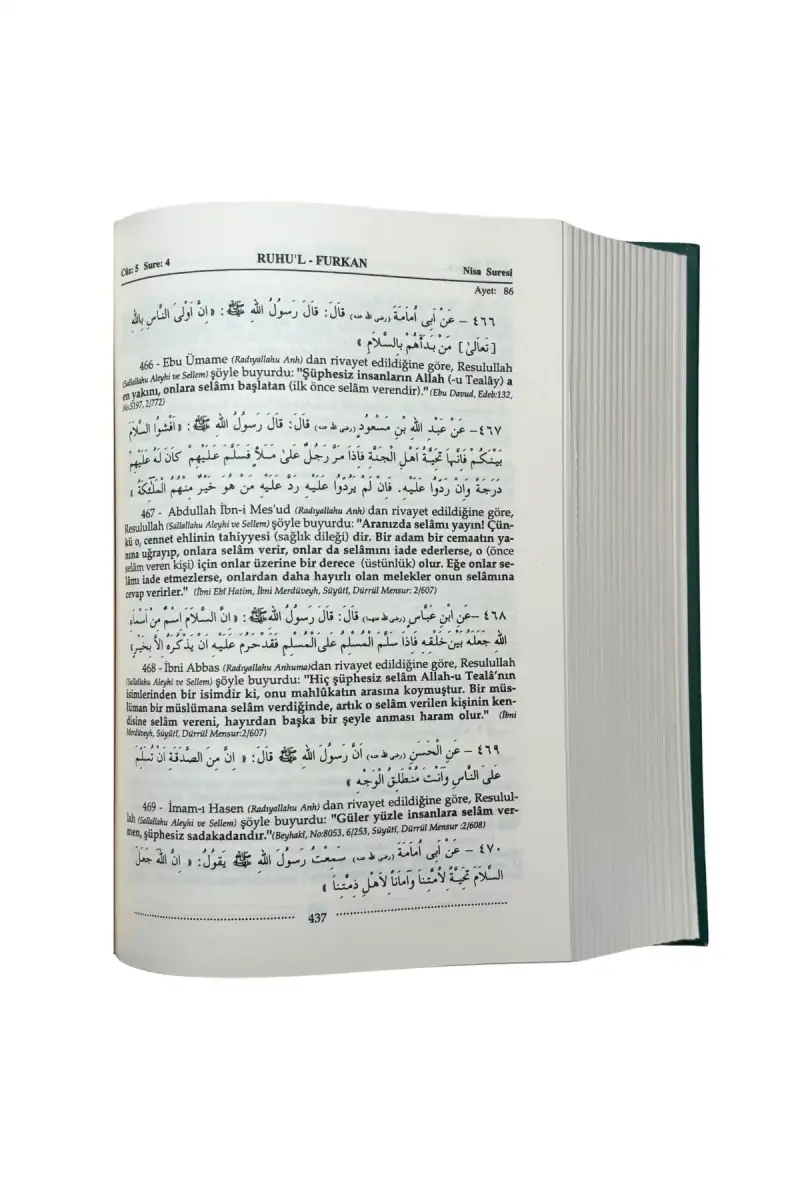 Cüz: 5 Sure: 4
RUHU'L - FURKAN
Nisa Suresi
Ayet: 86
٤٦٦ – عَنْ اَبِى اُمَامَةَ (رضى الله عنه) قَالَ: قَالَ رَسُولُ اللهِ ﷺ: « اِنَّ اَوْلَى النَّاسِ بِاللهِ
[ تَعَالَىٰ ] مَنْ بَدَأَهُمْ بِالسَّلاَمِ »
466 - Ebu Ümame (Radıyallahu Anh) dan rivayet edildiğine göre, Resulullah
(Sallallahu Aleyhi ve Sellem) şöyle buyurdu: "Şüphesiz insanların Allah (-u Tealây) a
en yakını, onlara selâmı başlatan (ilk önce selâm verendir)." (Ebu Davud, Edeb:132,
No:5197, 2/772)
٤٦٧– عَنْ عَبْدِ اللهِ بْنِ مَسْعُودٍ (رضى الله عنه) قَالَ: قَالَ رَسُولُ اللهِ ﷺ: « اَفْشُوا السَّلاَمَ
بَيْنَكُمْ فَاِنَّهَا تَحِيَّةُ اَهْلِ الْجَنَّةِ فَاِذَا مَرَّ رَجُلٌ عَلىٰ مَلَأٍ فَسَلَّمَ عَلَيْهِمْ كَانَ لَهُ عَلَيْهِمْ
دَرَجَةٌ وَاِنْ رَدُّوا عَلَيْهِ. فَاِنْ لَمْ يَرُدُّوا عَلَيْهِ رَدَّ عَلَيْهِ مَنْ هُوَ خَيْرٌ مِنْهُمُ الْمَلٰٓئِكَةُ »
467 - Abdullah İbn-i Mes'ud (Radıyallahu Anh) dan rivayet edildiğine göre,
Resulullah (Sallallahu Aleyhi ve Sellem) şöyle buyurdu: "Aranızda selâmı yayın! Çün-
kü o, cennet ehlinin tahiyyesi (sağlık dileği) dir. Bir adam bir cemaatın ya-
nına uğrayıp, onlara selâm verir, onlar da selâmını iade ederlerse, o (önce
selâm veren kişi) için onlar üzerine bir derece (üstünlük) olur. Eğe onlar se-
lâmı iade etmezlerse, onlardan daha hayırlı olan melekler onun selâmına
cevap verirler." (İbni Ebî Hatim, İbni Merdüveyh, Süyûtî, Dürrül Mensur: 2/607)
٤٦٨ –عَنِ ابْنِ عَبَّاسٍ (رضى الله عنهما) قَالَ: قَالَ رَسُولُ اللهِ ﷺ: « اِنَّ السَّلاَمَ اِسْمٌ مِنْ اَسْمَاءِ
اللهِ جَعَلَهُ بَيْنَ خَلْقِهِ فَاِذَا سَلَّمَ الْمُسْلِمُ عَلَى الْمُسْلِمِ فَقَدْ حَرُمَ عَلَيْهِ اَنْ يَذْكُرَهُ اِلاَّ بِخَيْرٍ»
468 - İbni Abbas (Radıyallahu Anhuma)dan rivayet edildiğine göre, Resulullah
(Sallallahu Aleyhi ve Sellem) şöyle buyurdu: "Hiç şüphesiz selâm Allah-u Tealâ'nın
isimlerinden bir isimdir ki, onu mahlûkatın arasına koymuştur. Bir müs-
lüman bir müslümana selâm verdiğinde, artık o selâm verilen kişinin ken-
disine selâm vereni, hayırdan başka bir şeyle anması haram olur." (İbni
Merdüveyh, Süyûtî, Dürrül Mensur:2/607)
٤٦٩ – عَنِ الْحَسَنِ (رضى الله عنه) اَنَّ رَسُولَ اللهِ ﷺ قَالَ: « اِنَّ مِنَ الصَّدَقَةِ اَنْ تُسَلِّمَ
عَلَى النَّاسِ وَاَنْتَ مُنْطَلِقُ الْوَجْهِ »
469 - İmam-ı Hasen (Radıyallahu Anh) dan rivayet edildiğine göre, Resulul-
lah (Sallallahu Aleyhi ve Sellem) şöyle buyurdu: "Güler yüzle insanlara selâm ver-
men, şüphesiz sadakadandır."(Beyhakî, No:8053, 6/253, Süyûtî, Dürrül Mensur :2/608)
٤٧٠ – عَنْ اَبِى اُمَامَةَ (رضى الله عنه) سَمِعْتُ رَسُولَ اللهِ ﷺ يَقُولُ: « اِنَّ اللهَ جَعَلَ
السَّلاَمَ تَحِيَّةً لِاُمَّتِنَا وَاَمَانًا لِاَهْلِ ذِمَّتِنَا »
437